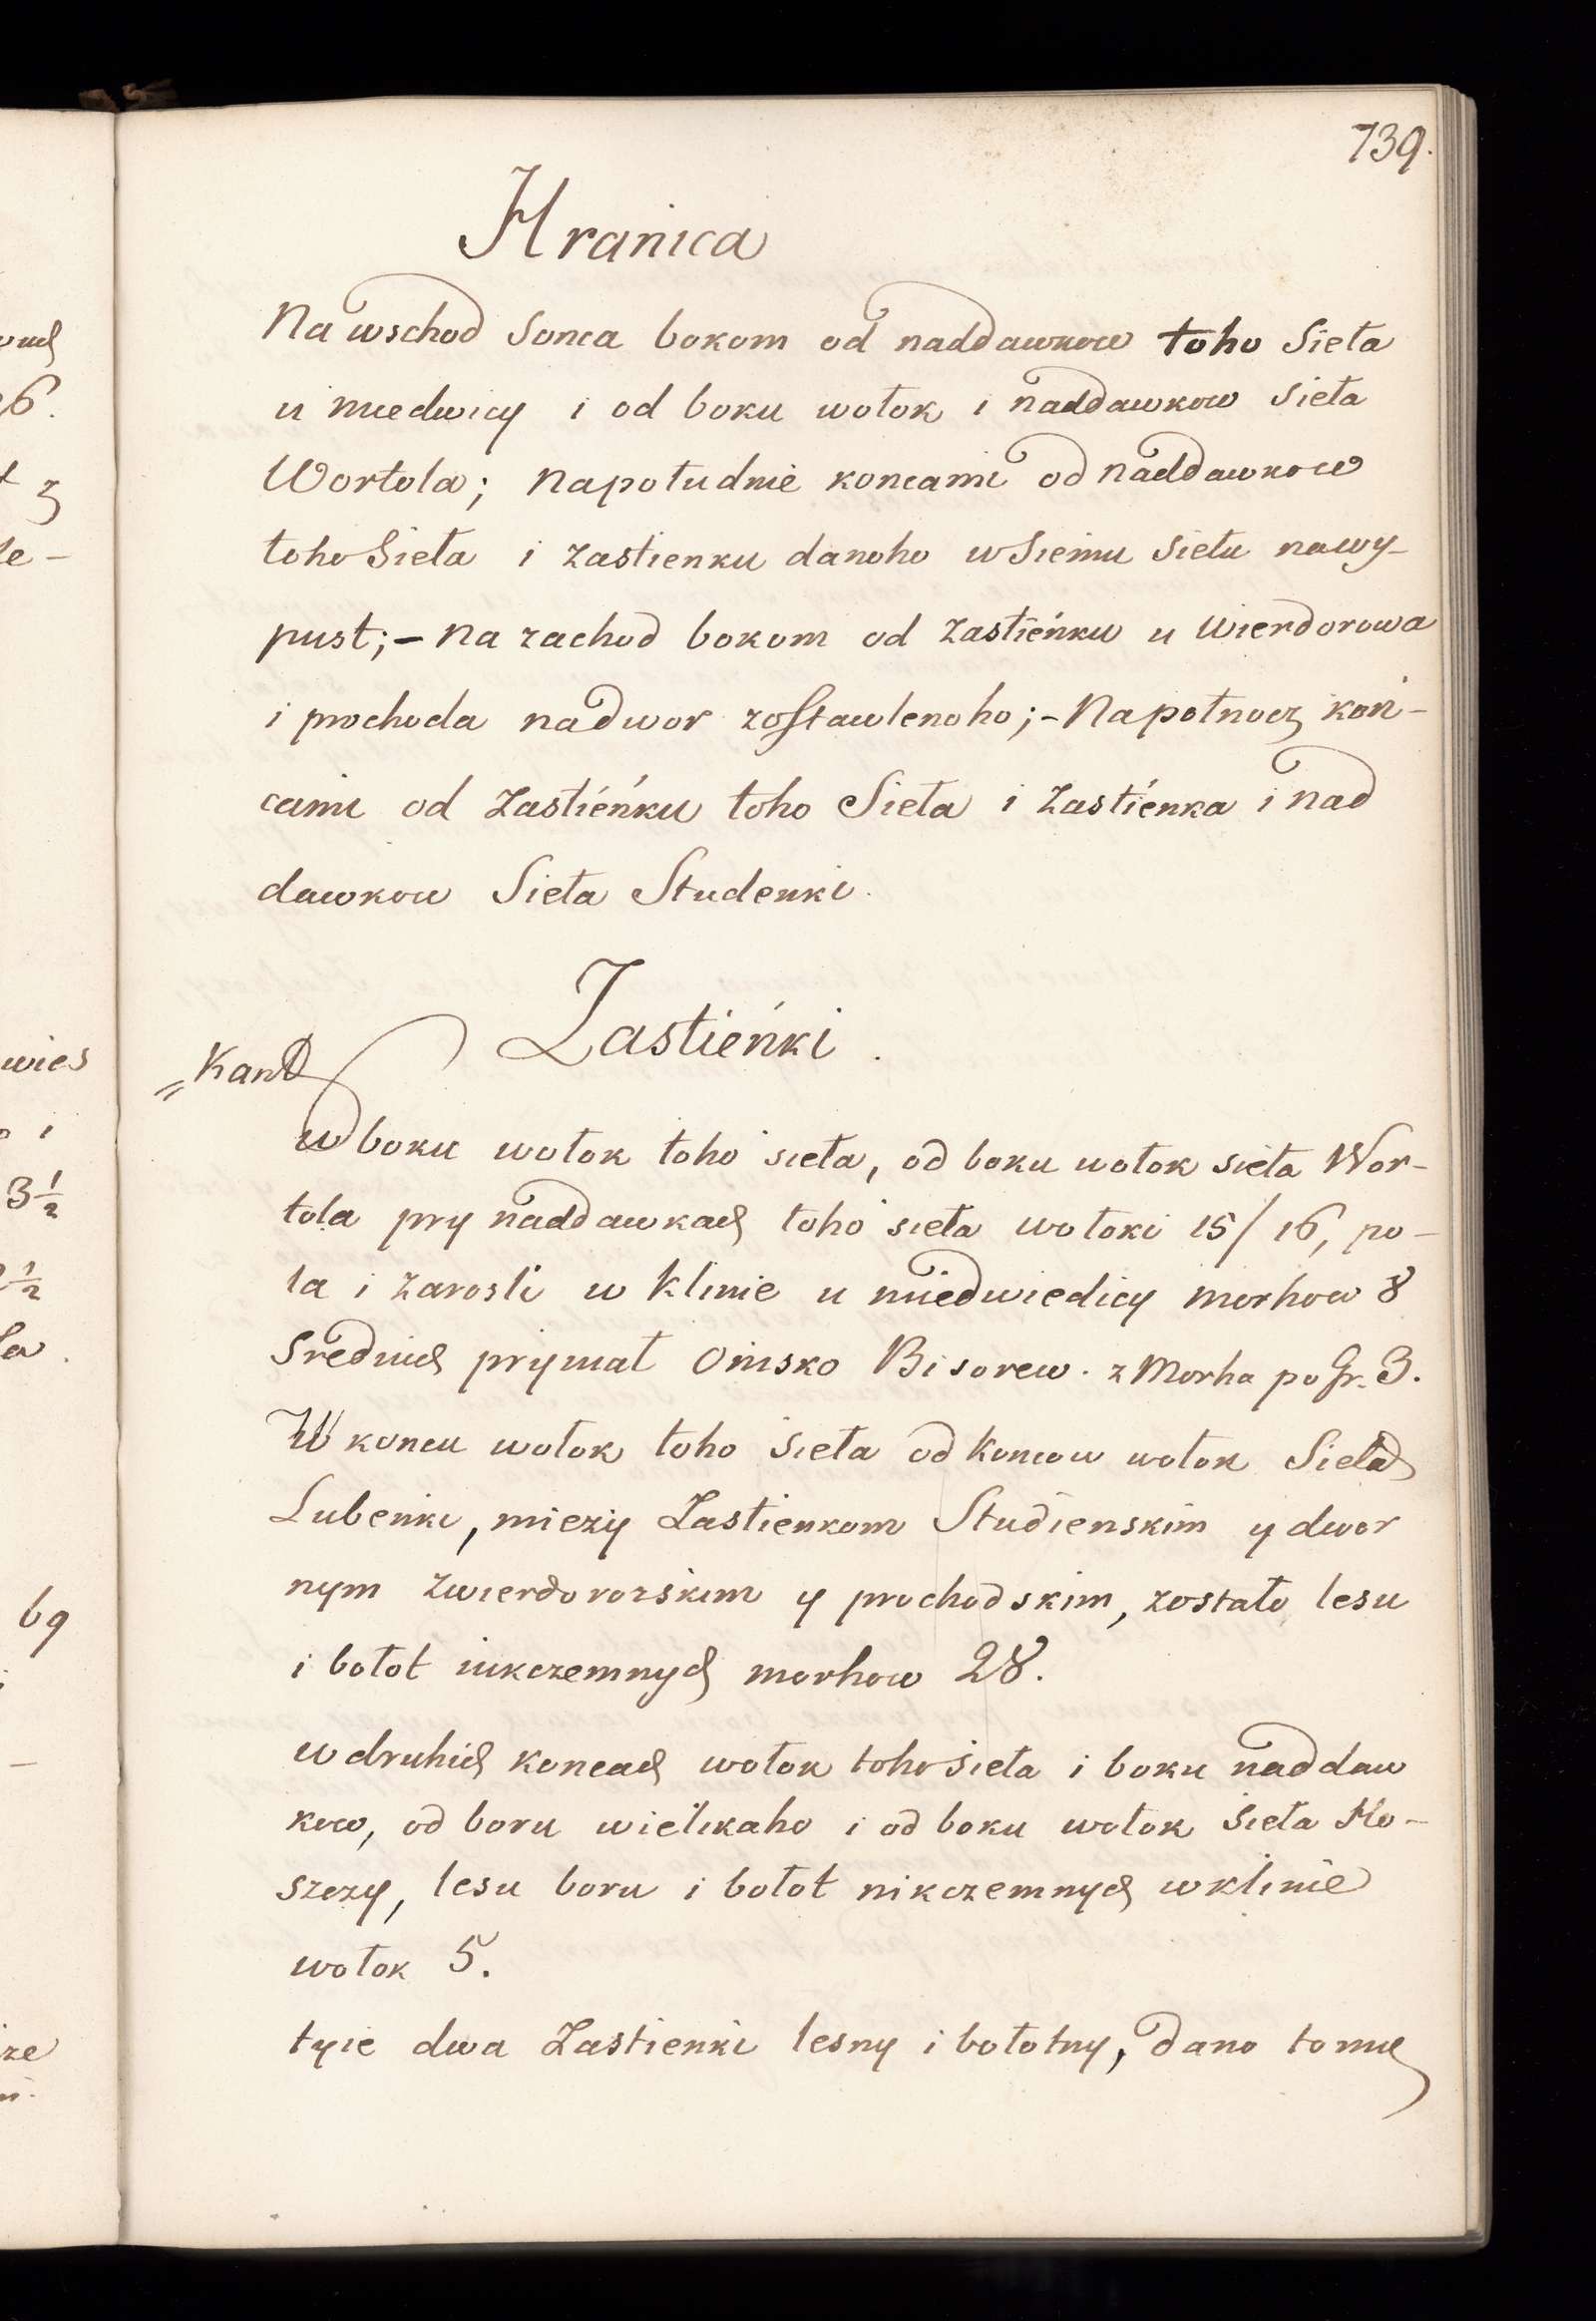 739.
Hranica
Na wschod Sonca bokom od naddawkow toho Sieła
u miedwicy i od boku wołok i naddawkow Sieła
Wortola; Na południe koncami od naddawkow
toho Sieła i zastienku danoho w Siemu Siełu nawy-
pust;- Na zachod bokom od zastieńku u Wierdorowa
i prochoda nadwor zostawlenoho;- Na połnocz koń-
cami od Zastieńku toho Sieła i zastienka i nad
dawkow Sieła Studenki.
Zastieńki.
"Kant
W boku wołok toho sieła, od boku wołok sieła Wor-
tola pry naddawkach toho sieła wołoki 15/16, po-
la i zarosli w klinie u miedwiedicy morhow 8
Srednich prymał Onisko Bisorew. z Morha po Gr. 3.
W koncu wołok toho sieła od koncow wołok Sieła
Lubenki, miezy Zastienkom Studienskim y dwor
nym zwierdorozskim y prochodskim, zostało lesu
i bołot nikczemnych morhow 28.
w druhich koncach wołok toho sieła i boku naddaw
kow, od boru wielikaho i od boku wołok sieła Ho-
szczy, lesu boru i bołot nikczemnych w klinie
wołok 5.
tyie dwa Zastienki lesny i bołotny, dano tomu
ch
26.
z
le-
wies
o i
3½
½
ła.
69
ze